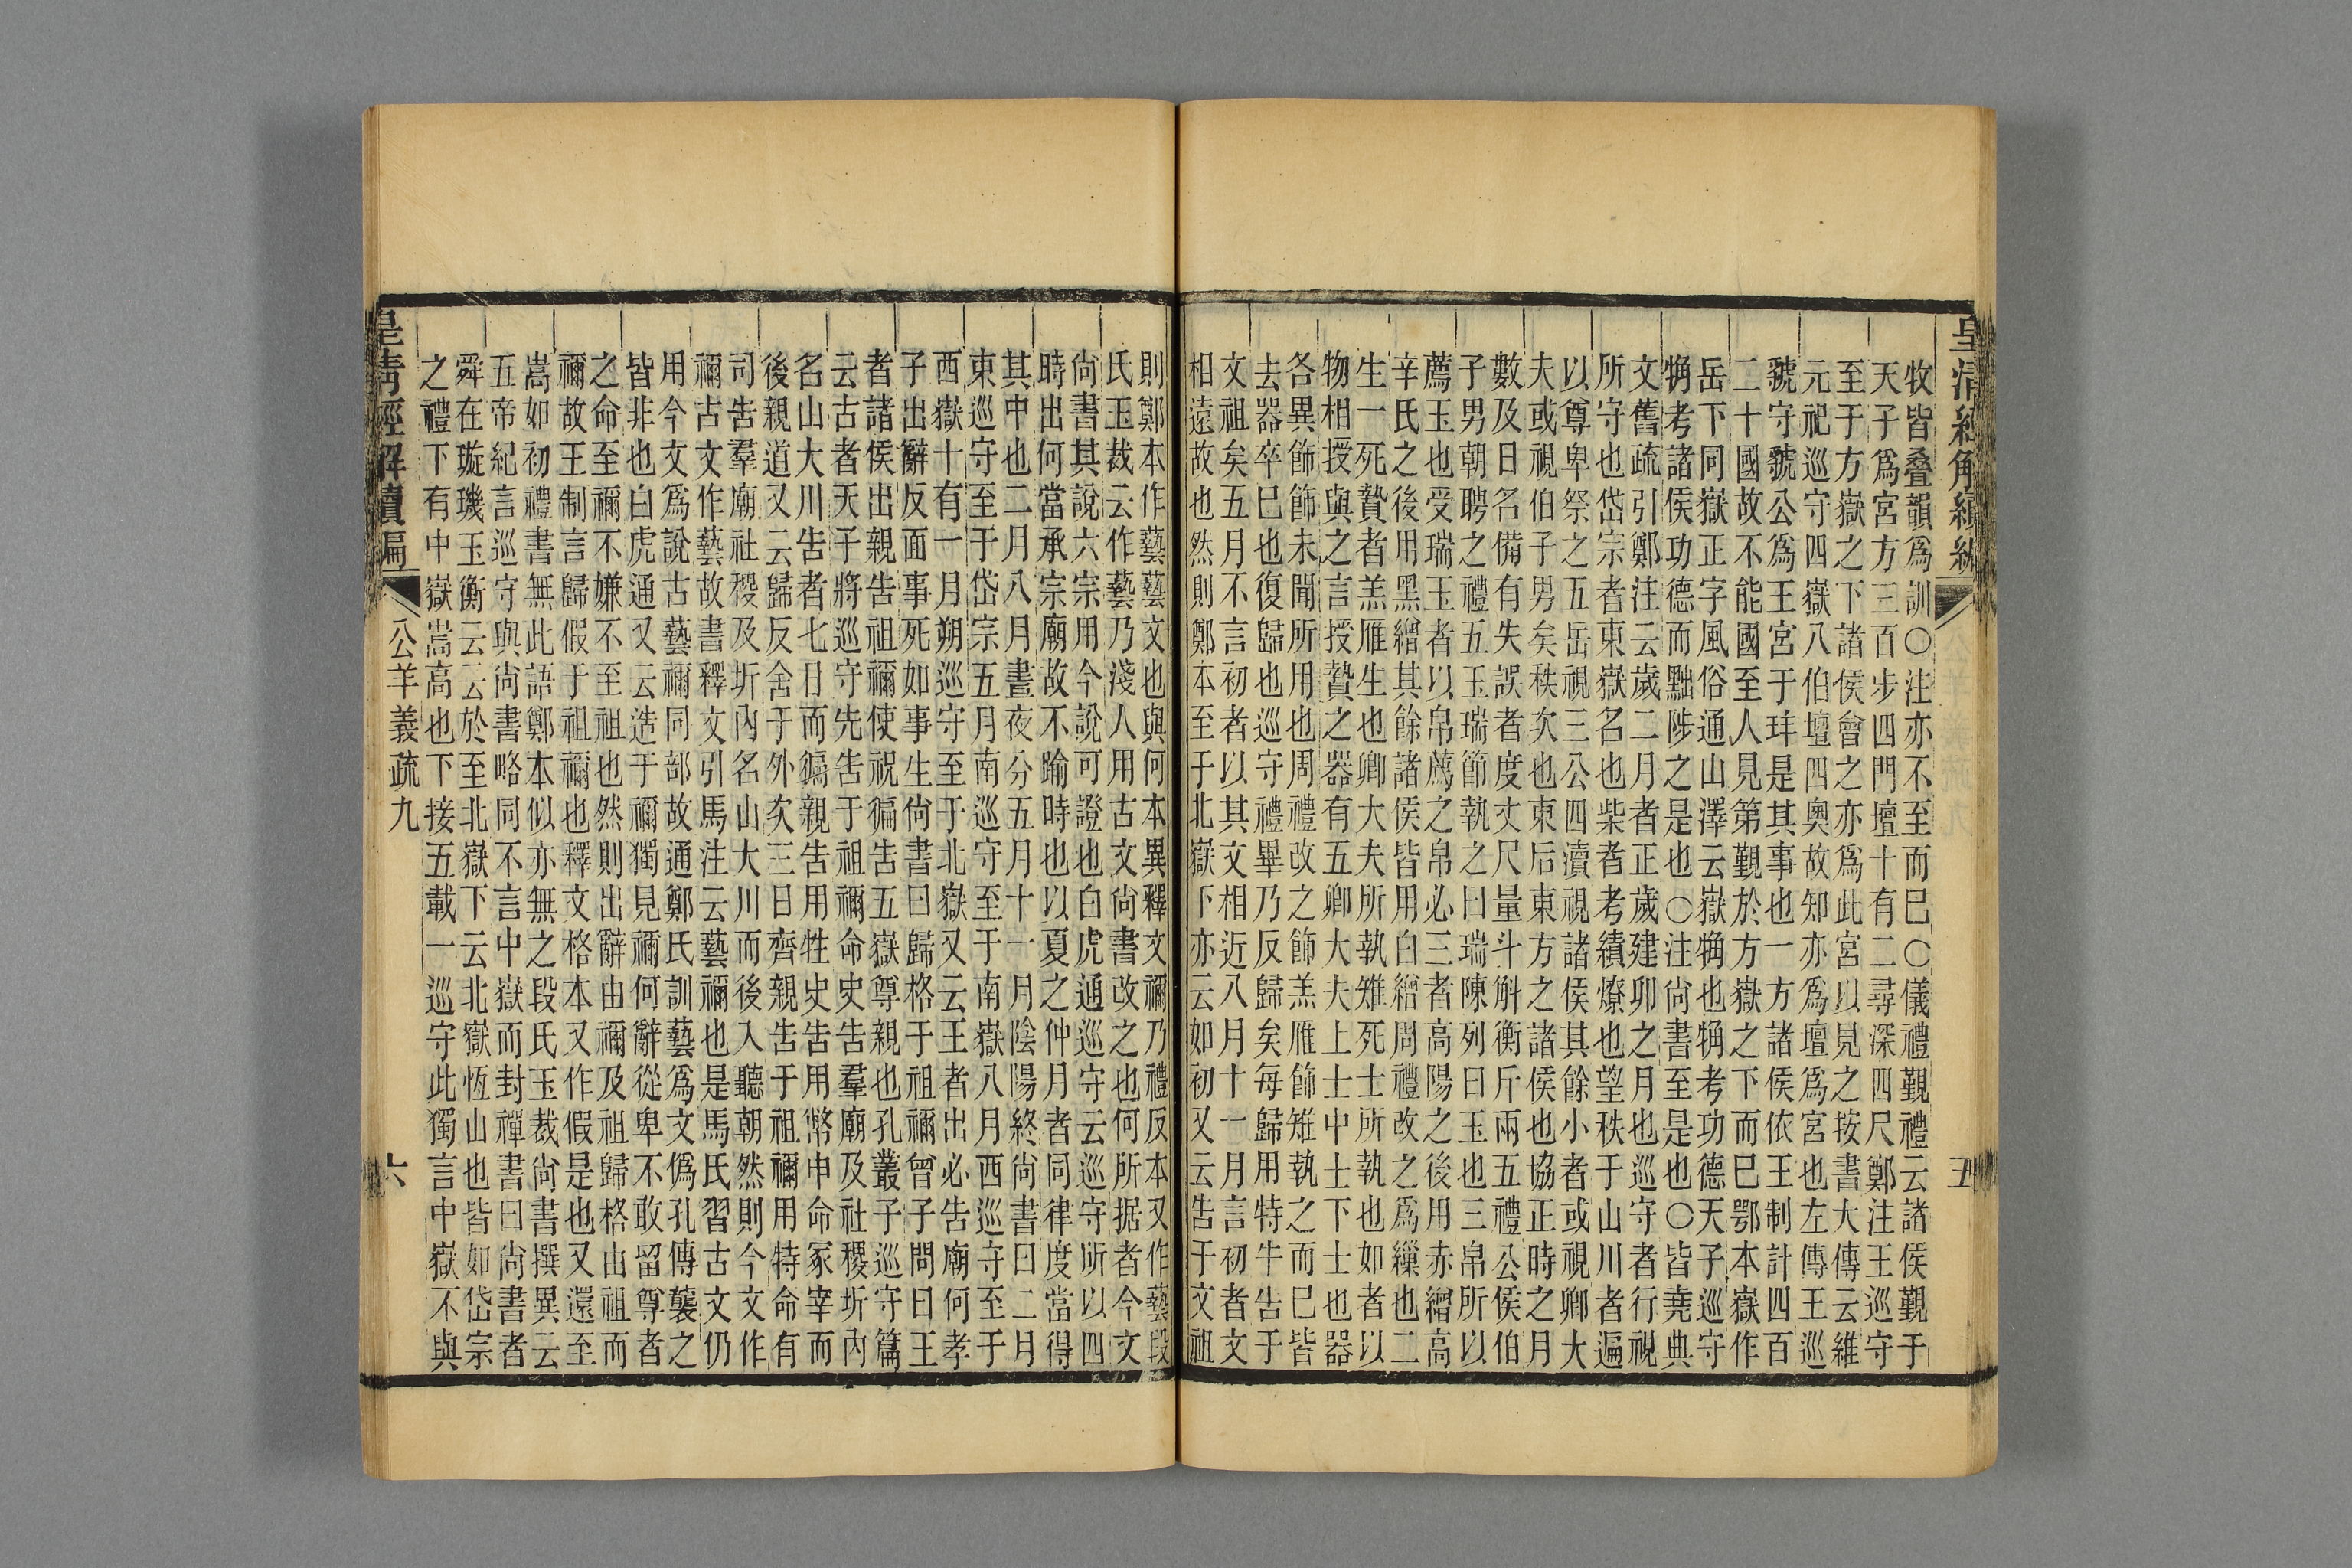 皇清經解續編
五
牧皆疊韻爲訓〇注亦不至而巳〇儀禮覲禮云諸侯覲于
天子爲宮方三百步四門壇十有二尋深四尺鄭注王巡守
至于方嶽之下諸侯會之亦爲此宮以見之按書大傳云維
元祀巡守四嶽八伯壇四奧故知亦爲壇爲宮也左傳王巡
虢守虢公爲王宮于玤是其事也一方諸侯依王制計四百
二十國故不能國至人見第覲於方嶽之下而巳鄂本嶽作
岳下同嶽正字風俗通山澤云嶽㧛也㧛考功德天子巡守
㧛考諸侯功德而黜陟之是也〇注尚書至是也〇皆堯典
文舊疏引鄭注云歲二月者正歲建卯之月也巡守者行視
所守也岱宗者東嶽名也柴者考績燎也望秩于山川者遍
以尊卑祭之五岳視三公四瀆視諸侯其餘小者或視卿大
夫或視伯子男矣秩次也東后東方之諸侯也協正時之月
數及日名備有失誤者度丈尺量斗斛衡斤兩五禮公侯伯
子男朝聘之禮五玉瑞節執之曰瑞陳列曰玉也三帛所以
薦玉也受瑞玉者以帛薦之帛必三者高陽之後用赤繒高
辛氏之後用黑繒其餘諸侯皆用白繒周禮改之爲繅也二
生一死贄者羔雁生也卿大夫所執雉死士所執也如者以
物相授與之言授贄之器有五卿大夫上士中士下士也器
各異飾飾未聞所用也周禮改之飾羔雁飾雉執之而巳皆
去器卒巳也復歸也巡守禮畢乃反歸矣每歸用特牛告于
文祖矣五月不言初者以其文相近八月十一月言初者文
相遠故也然則鄭本至于北嶽下亦云如初又云告于文祖
則鄭本作藝藝文也與何本異釋文禰乃禮反本又作藝段
氏玉裁云作藝乃淺人用古文尚書改之也何所据者今文
尚書其說六宗用今說可證也白虎通巡守云巡守所以四
時出何當承宗廟故不踰時也以夏之仲月者同律度當得
其中也二月八月晝夜分五月十一月陰陽終尚書曰二月
東巡守至于岱宗五月南巡守至于南嶽八月西巡守至于
西嶽十有一月朔巡守至于北嶽又云王者出必告廟何孝
子出辭反面事死如事生尚書曰歸格于祖禰曾子問曰王
者諸侯出親告祖禰使祝徧告五嶽尊親也孔叢子巡守篇
云古者天子將巡守先告于祖禰命史告羣廟及社稷圻內
名山大川告者七日而徧親告用牲史告用幣申命冢宰而
後親道又云歸反舍于外次三日齊親告于祖禰用特命有
司告羣廟社稷及圻內名山大川而後入聽朝然則今文作
禰古文作藝故書釋文引馬注云藝禰也是馬氏習古文仍
用今文爲說古藝禰同部故通鄭氏訓藝爲文僞孔傳襲之
皆非也白虎通又云造于禰獨見禰何辭從卑不敢留尊者
之命至禰不嫌不至祖也然則出辭由禰及祖歸格由祖而
禰故王制言歸假于祖禰也釋文格本又作假是也又還至
嵩如初禮書無此語鄭本似亦無之段氏玉裁尚書撰異云
五帝紀言巡守與尚書略同不言中嶽而封禪書曰尚書者
舜在璇璣玉衡云云於至北嶽下云北嶽恆山也皆如岱宗
之禮下有中嶽嵩高也下接五載一巡守此獨言中嶽不與
皇清經解續編
公羊義疏九
六